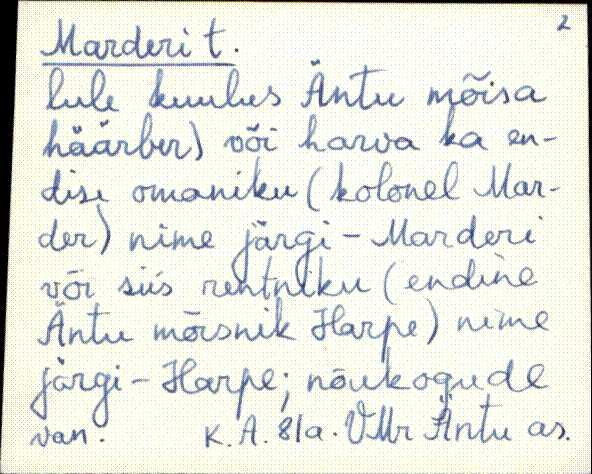 2
Marderi t.
lule kuulus Äntu mõisa
häärber) või harva ka en-
dise omaniku (kolonel Mar-
der) nime järgi - Marderi
või siis rentniku (endine
Äntu mõisnik Harpe) nime
järgi - Harpe; nõukogude
van. K. A. 81a. VMr Äntu as.